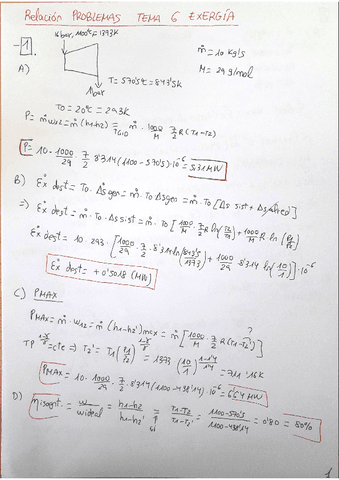 Relación PROBLEMAS TEMA 6 EXERGÍA
1.
A)
1100°C = 1373K
ṁ = 10 kg/s
M = 29 g/mol
T = 570'5°C = 843'5K
1 bar
T0 = 20°C = 293K
P = ṁ w12 = ṁ (h1-h2) = ṁ · 1000/M · 7/2 R (T1-T2)
TGID
P = 10 · 1000/29 · 7/2 · 8'314 (1100-570'5) · 10^-6 = 5.31 MW
B) Ėx dest = T0 · Δṡgen = ṁ · T0 Δsgen = ṁ · T0 [Δs sist +
=) Ėx dest = ṁ · T0 · Δs sist = ṁ · T0 [1000/M · 7/2 R ln(T2/T1) + 1000/M R ln(P1/P2)]
Ėx dest = 10 · 293 · [1000/29 · 7/2 · 8'314 ln(843'5/1373) + 1000/29 · 8'314 ln(10/1)] · 10^-6
Ėx dest = +0'5018 (MW)
C) PMAX
PMAX = ṁ · w12 = ṁ (h1-h2')max = ṁ [1000/M · 7/2 R (T1-T2')]
?
TP^(1-γ/γ) = cte => T2' = T1 (P1/P2)^(1-γ/γ) = 1373 (10/1)^(1-1'4/1'4) = 711'16K
PMAX = 10 · 1000/29 · 7/2 · 8'314 (1100-438'14) · 10^-6 = 6'64 MW
D) ηisoent. = w/wideal = h1-h2/h1-h2' = T1-T2/T1-T2' = 1100-570'5/1100-438'14 = 0'80 = 80%
1